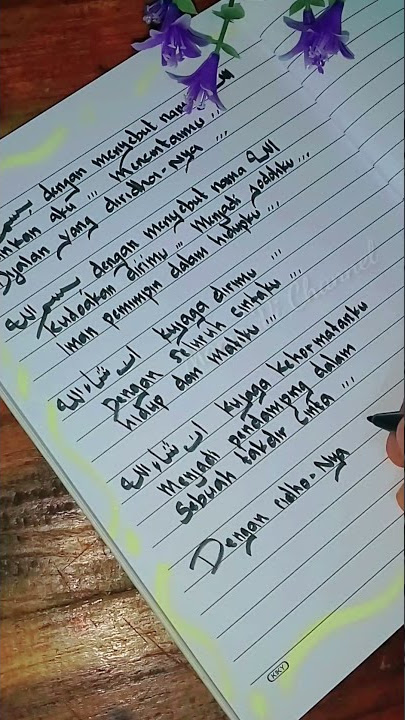 بسم الله dengan menyebut nama الله
inkan aku ... mencintaimu ...
Djalan yang diridhoi-Nya ...
بسم الله dengan menyebut nama الله
kudoakan dirimu ... Menjadi jodohku ...
Iman pemimpin dalam hidupku ...
ان شاء الله kujaga dirimu ...
Dengan seluruh cintaku ...
hidup dan matiku ...
ان شاء الله kujaga kehormatanku
menjadi pendamping dalam
sebuah takdir cinta ...
Dengan ridho-Nya
KKY